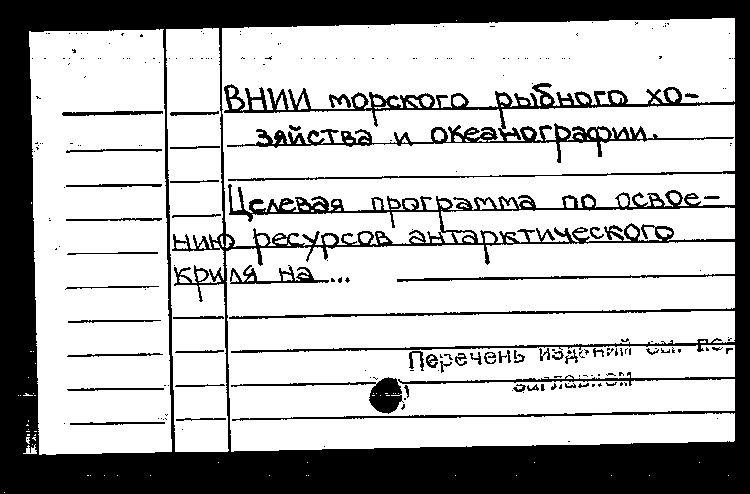 ВНИИ морского рыбного хо-
зяйства и океанографии.
Целевая программа по освое-
нию ресурсов антарктического
криля на ...
Перечень изданий см. под
заглавием